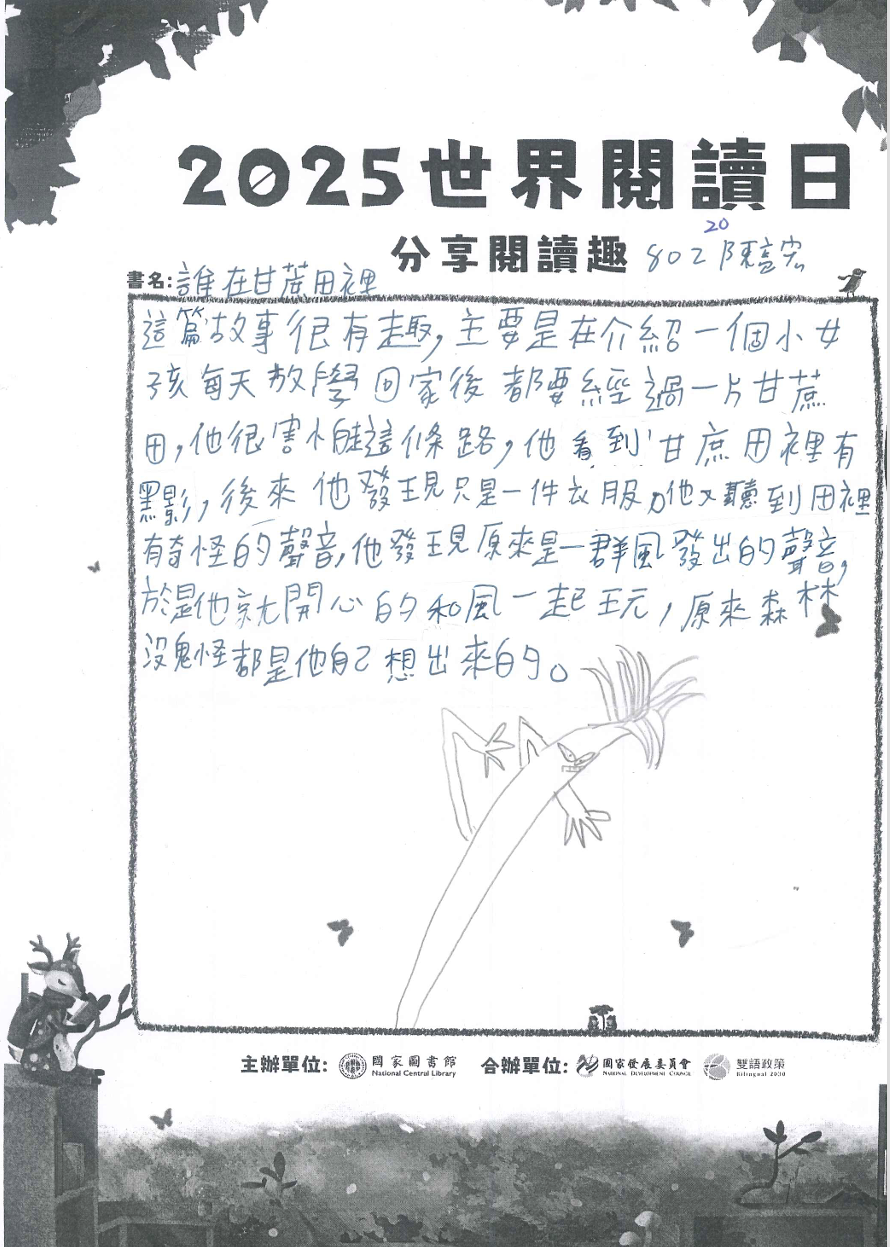 2025世界閱讀日
分享閱讀趣
20
802 陳宏
書名:誰在甘蔗田裡
這篇故事很有趣,主要是在介紹一個小女
孩每天放學回家後都要經過一片甘蔗
田,他很害怕走這條路,他看到甘蔗田裡有
黑影,後來他發現只是一件衣服,他又聽到田裡
有奇怪的聲音,他發現原來是一群風發出的聲音,
於是他就開心的和風一起玩,原來森林
沒鬼怪都是他自己想出來的。
主辦單位: 國家圖書館 National Central Library 合辦單位: 國家發展委員會 National Development Council 雙語政策 Bilingual 2030